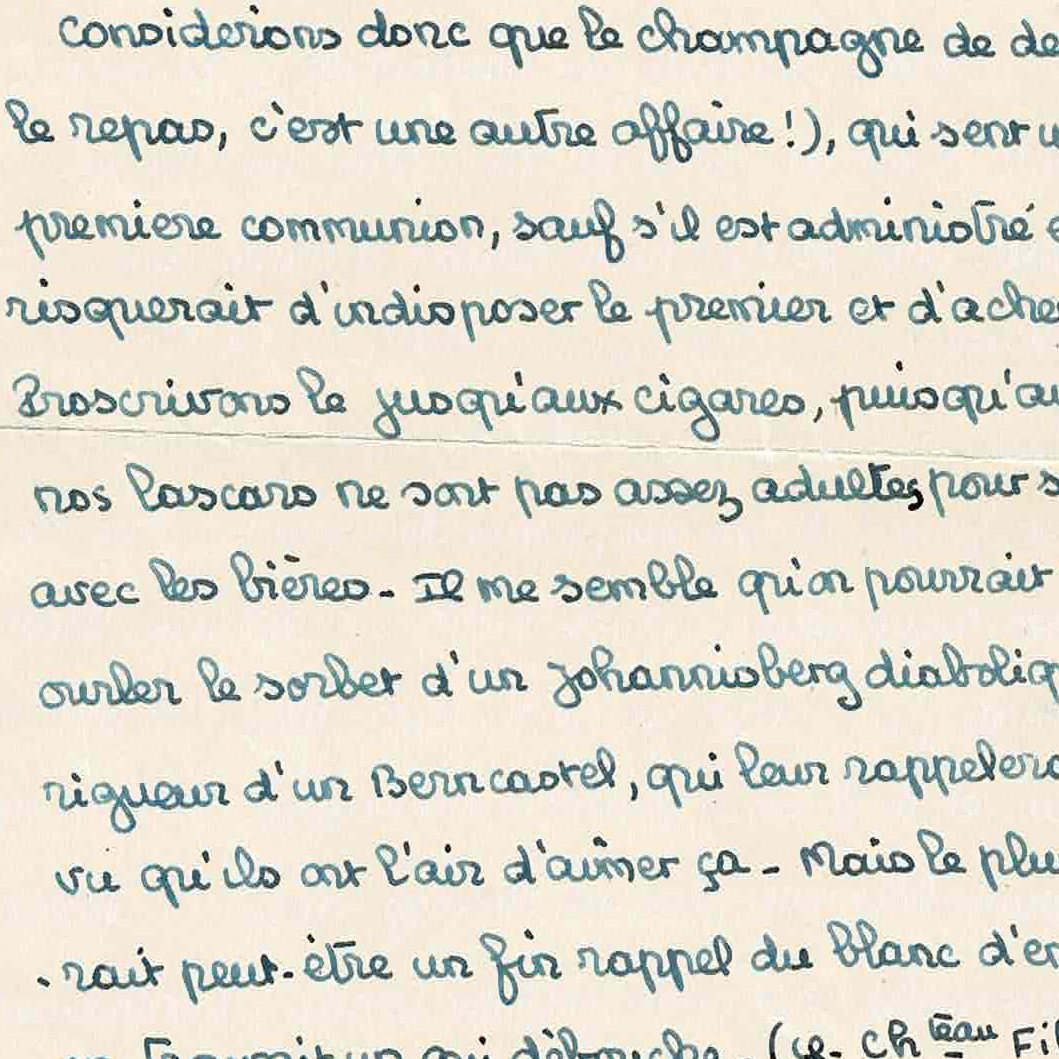 considerions donc que le champagne de de
le repas, c'est une autre affaire!), qui sent u
premiere communion, sauf s'il est administré e
risquerait d'indisposer le premier et d'ache
Proscrivons le jusqu'aux cigares, puisqu'au
nos lascars ne sont pas assez adultes pour s
avec les bières - Il me semble qu'on pourrait
ourler le sorbet d'un Johannisberg diaboliq
rigueur d'un Berncastel, qui leur rappelera
vu qu'ils ont l'air d'aimer ça - Mais le plu
. rait peut-être un fin rappel du blanc d'en
un qui débouche (